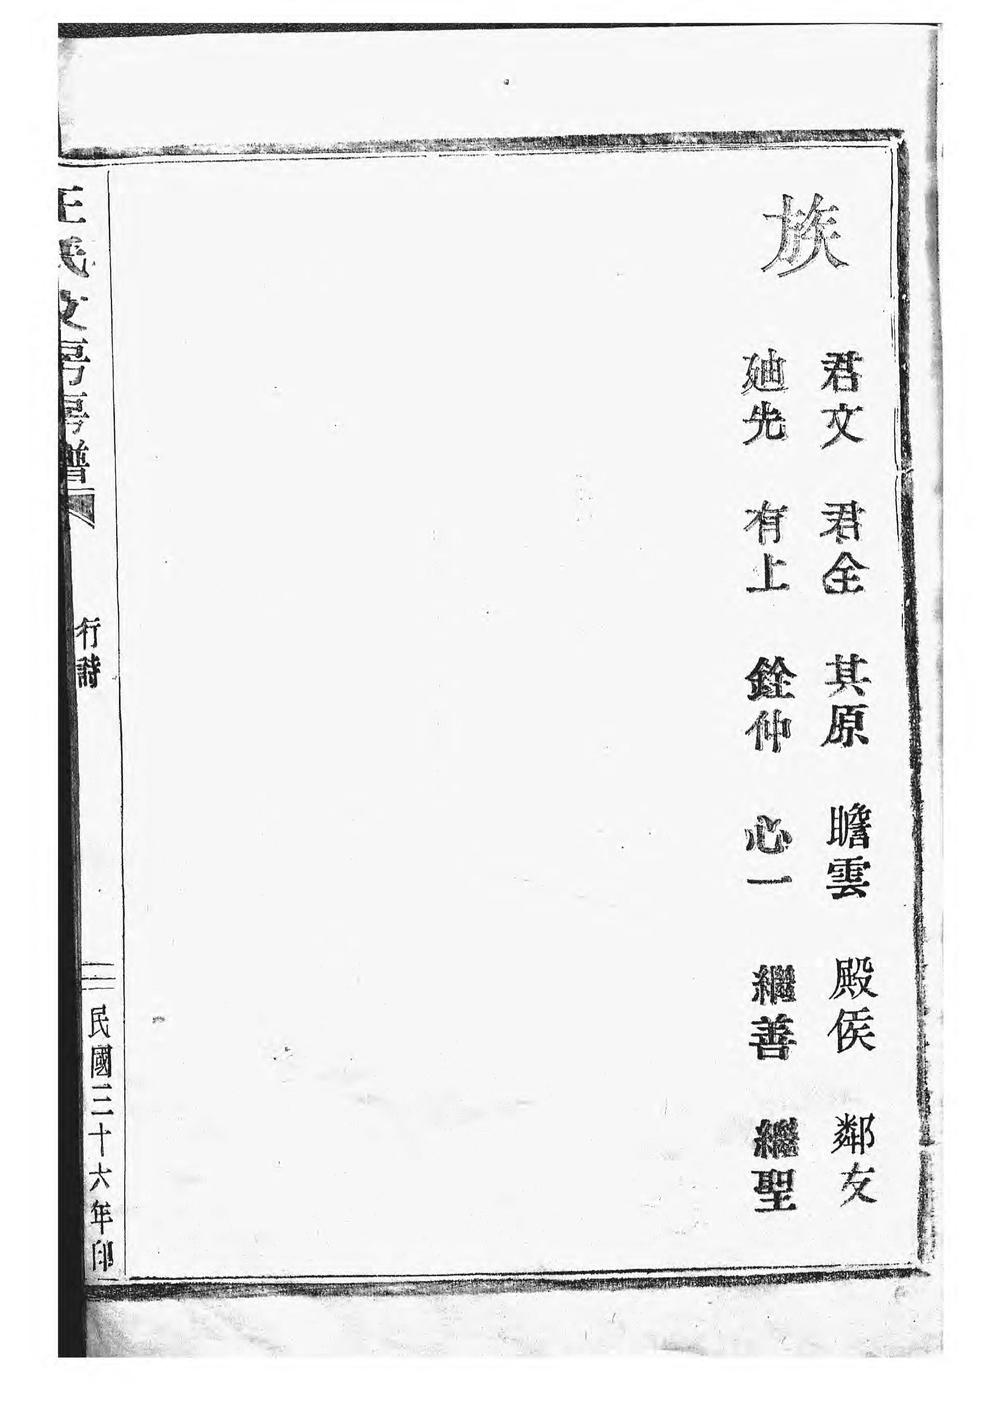 族
君文 君全 其原 瞻雲 殿侯 鄰友
廸先 有上 銓仲 心一 繼善 繼聖
王氏文房房譜
行詩
民國三十六年印